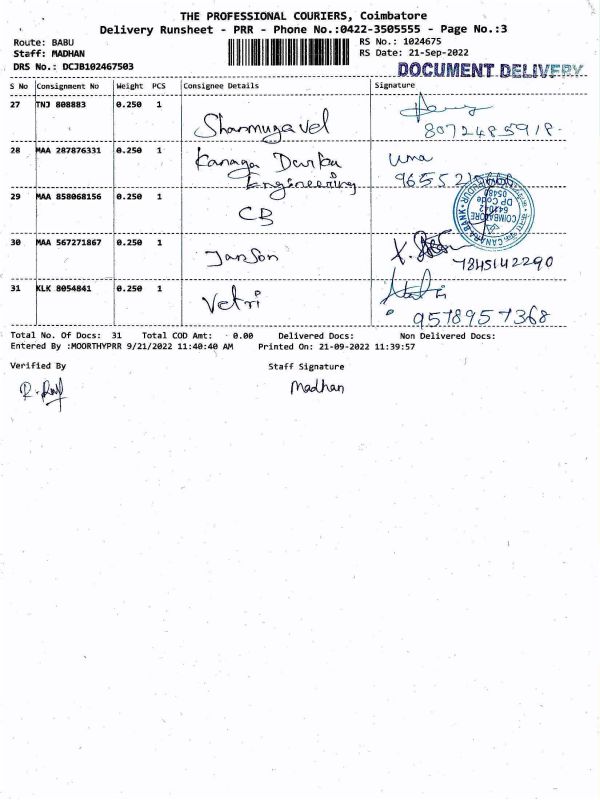 THE PROFESSIONAL COURIERS, Coimbatore
Delivery Runsheet - PRR - Phone No.:0422-3505555 - Page No.:3
Route: BABU
RS No.: 1024675
Staff: MADHAN
RS Date: 21-Sep-2022
DRS No.: DCJB102467503
DOCUMENT DELIVERY
S No Consignment No Weight PCS Consignee Details Signature
27 TNJ 808883 0.250 1
Shanmugavel
8072485918
28 MAA 287876331 0.250 1 Kanaga Durka Uma
Engineering
29 MAA 858068156 0.250 1
CB
CANARA BANK
COIMBATORE
641042
DP Code
05480
30 MAA 567271867 0.250 1
Janson
7845142290
31 KLK 8054841 0.250 1
Vetri
9578957368
Total No. Of Docs: 31 Total COD Amt: 0.00 Delivered Docs: Non Delivered Docs:
Entered By :MOORTHYPRR 9/21/2022 11:40:40 AM Printed On: 21-09-2022 11:39:57
Verified By Staff Signature
Madhan